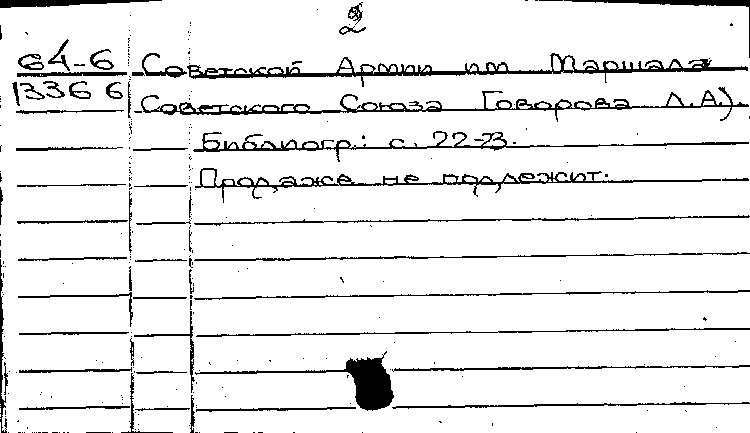 2
64-6 Советской Армии им Маршала
13366 Советского Союза Говорова Л.А.).
Библиогр.: с. 22-23.
Продаже не подлежит.